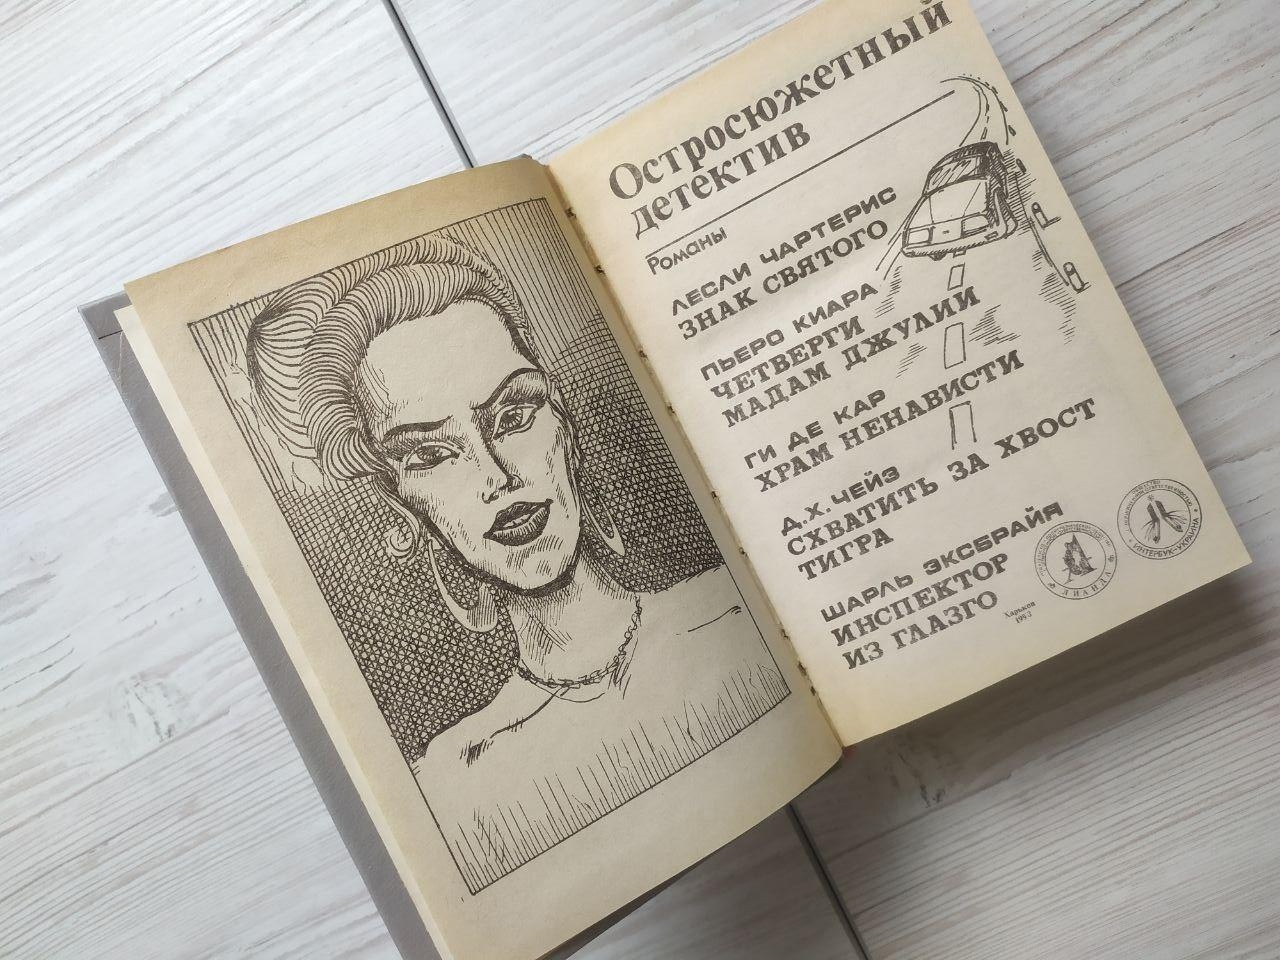 Остросюжетный
детектив
Романы
ЛЕСЛИ ЧАРТЕРИС
ЗНАК СВЯТОГО
ПЬЕРО КИАРА
ЧЕТВЕРГИ
МАДАМ ДЖУЛИИ
ГИ ДЕ КАР
ХРАМ НЕНАВИСТИ
Д.Х.ЧЕЙЗ
СХВАТИТЬ ЗА ХВОСТ
ТИГРА
ШАРЛЬ ЭКСБРАЙЯ
ИНСПЕКТОР
ИЗ ГЛАЗГО
Харьков
ЛИАНДА
ИНТЕРБУК-УКРАИНА